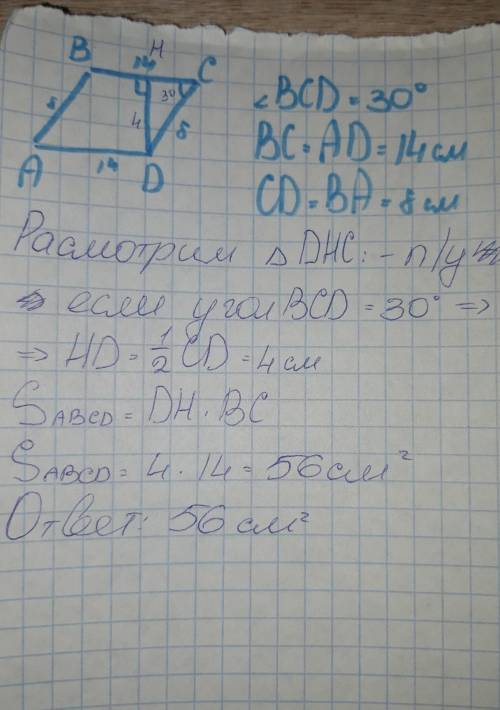 H
B 14 C
30
8 4 8
A 14 D
∠BCD = 30°
BC = AD = 14 см
CD = BA = 8 см
Расмотрим △ DHC: - п/у
если угол BCD = 30° =>
=> HD = 1/2 CD = 4 см
SABCD = DH · BC
SABCD = 4 · 14 = 56 см²
Ответ: 56 см²